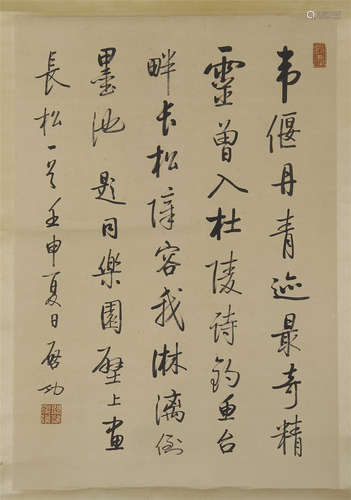 韦偃丹青迹最奇精
灵曾入杜陵诗钓鱼台
畔长松障容我淋漓倒
墨池 题同乐园壁上画
长松一首壬申夏日启功